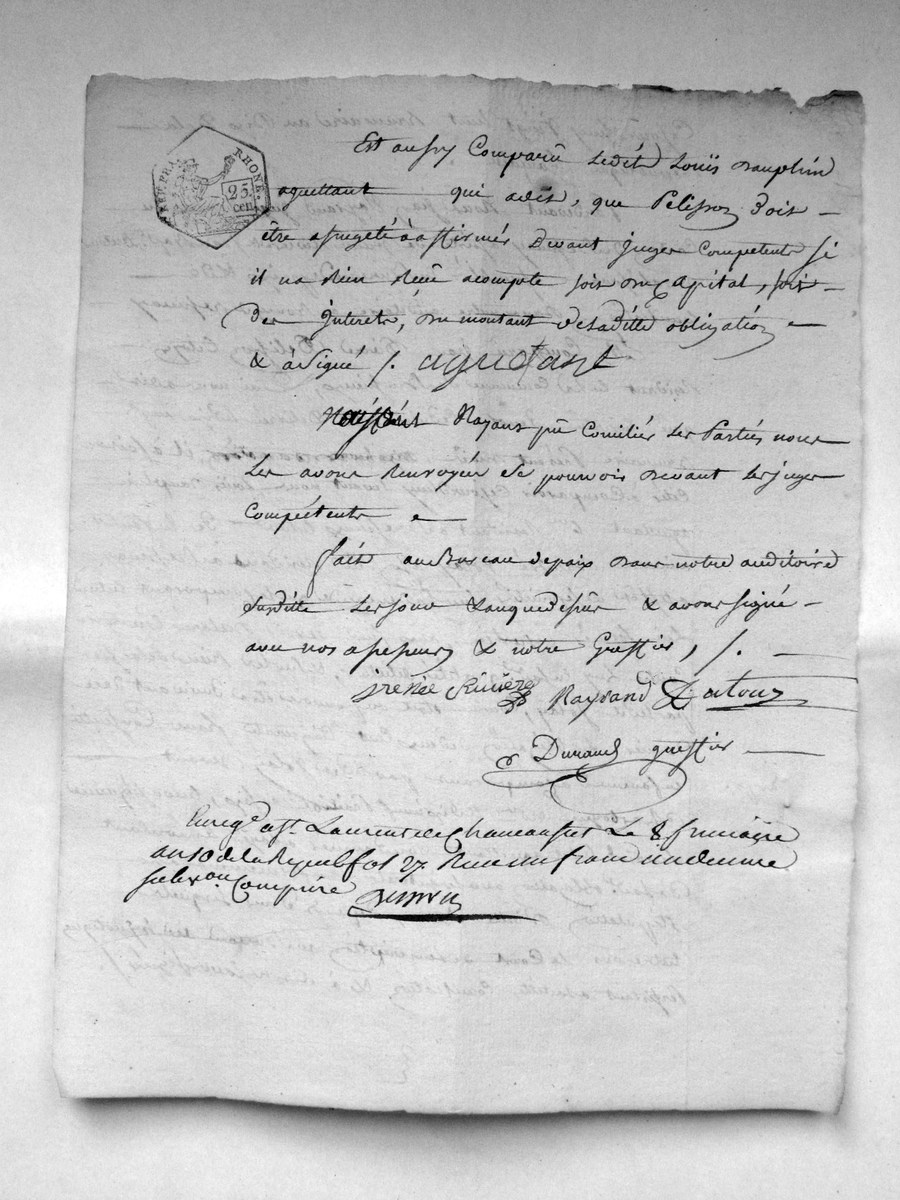 REP. FRA. RHONE.
25. cen.
Est aussy Comparû Ledit Louis dauphin
aguettant qui a dit, que Pelisson doit
être assugeté à affirmer devant juges Competents si
il na Rien Reçu acompte soit du Capital, soit
Des Interets, du montant de saditte obligation
& à signé /. aguetant
Nayant pû Concilier les Parties nous
Les avons Renvoyés se pourvoir devant les juges
Compétents
fait au Bureau de paix dans notre auditoire
susditte Les jour & an que dessus & avons signé
avec nos assesseurs & notre Greffier, /.
irenée Riviere Raynand Latour
Durand greffier
Enreg.é a St Laurent de Chamousset Le 8 frimaire
an 10 de la Repub f.o 27 Recu un franc un decime